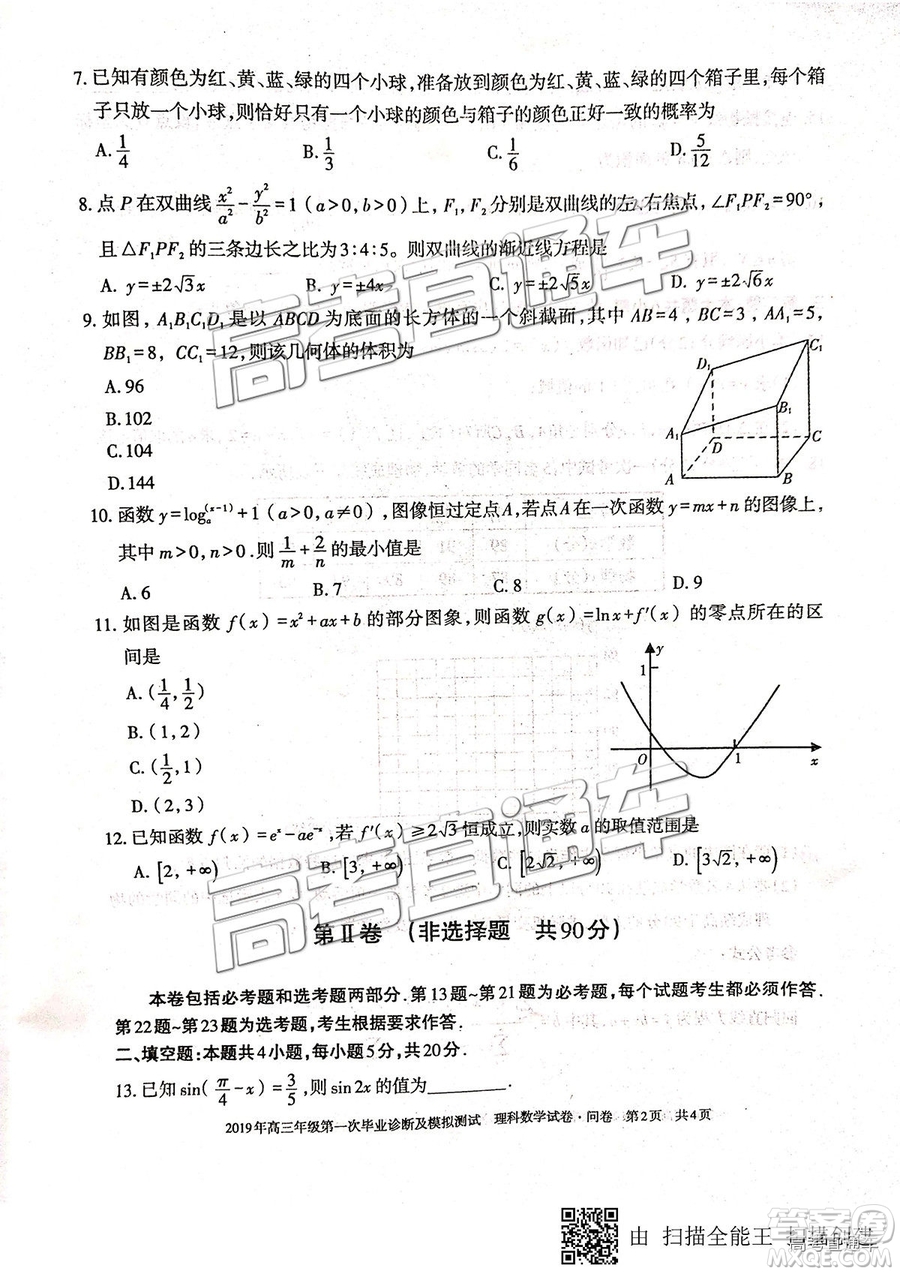 7. 已知有颜色为红、黄、蓝、绿的四个小球，准备放到颜色为红、黄、蓝、绿的四个箱子里，每个箱
子只放一个小球，则恰好只有一个小球的颜色与箱子的颜色正好一致的概率为
A. 1/4 B. 1/3 C. 1/6 D. 5/12
8. 点 P 在双曲线 x²/a² − y²/b² = 1（a>0, b>0）上，F₁, F₂ 分别是双曲线的左、右焦点，∠F₁PF₂=90°，
且△F₁PF₂的三条边长之比为3:4:5。则双曲线的渐近线方程是
A. y=±2√3x B. y=±4x C. y=±2√5x D. y=±2√6x
9. 如图，A₁B₁C₁D₁是以ABCD为底面的长方体的一个斜截面，其中AB=4，BC=3，AA₁=5，
BB₁=8，CC₁=12，则该几何体的体积为
A. 96
B. 102
C. 104
D. 144
A₁ D₁ C₁ B₁ D C A B
10. 函数 y=logₐ⁽ˣ⁻¹⁾+1（a>0, a≠0），图像恒过定点A，若点A在一次函数y=mx+n的图像上，
其中m>0, n>0.则 1/m + 2/n 的最小值是
A. 6 B. 7 C. 8 D. 9
11. 如图是函数 f(x)=x²+ax+b 的部分图象，则函数 g(x)=lnx+f′(x) 的零点所在的区
间是
A. (1/4, 1/2)
B. (1, 2)
C. (1/2, 1)
D. (2, 3)
y 1 O 1 x
12. 已知函数 f(x)=eˣ−ae⁻ˣ，若 f′(x)≥2√3恒成立，则实数a的取值范围是
A. [2, +∞) B. [3, +∞) C. [2√2, +∞) D. [3√2, +∞)
第Ⅱ卷 （非选择题 共90分）
本卷包括必考题和选考题两部分.第13题~第21题为必考题，每个试题考生都必须作答.
第22题~第23题为选考题，考生根据要求作答.
二、填空题：本题共4小题，每小题5分，共20分.
13. 已知 sin(π/4−x)=3/5，则 sin2x 的值为________.
2019年高三年级第一次毕业诊断及模拟测试 理科数学试卷·问卷 第2页 共4页
高考直通车
高考直通车
由 扫描全能王 扫描创建
高考直通车
答案圈
MXQE.COM